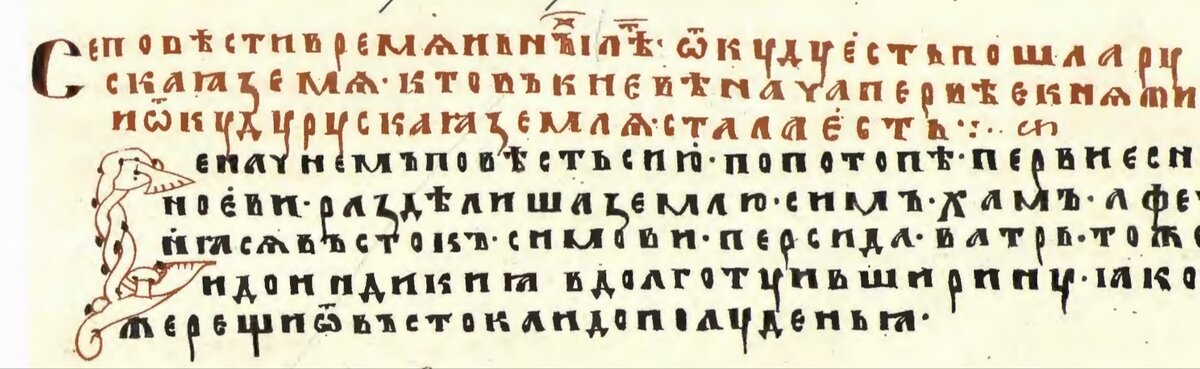 Се повѣсти времѧньнꙑⷯ лѣⷮ · ѿкуду єсть пошла ру
скаꙗ земѧ · кто въ кнєвѣ нача первѣє кнѧжи
и ѿкуду рускаꙗ землѧ стала єсть ·:·
сѥ начнемъ повѣсть сию · по потопѣ · первиє сн
ноєви · раздѣлиша землю · симъ · хамъ · афе
и ꙗсѧ въстокъ · симови · персида · ватрь · тоже
и до индикиꙗ в долготу и в ширину · ꙗко
же рещи ѿ въстока и до полуденьꙗ ·